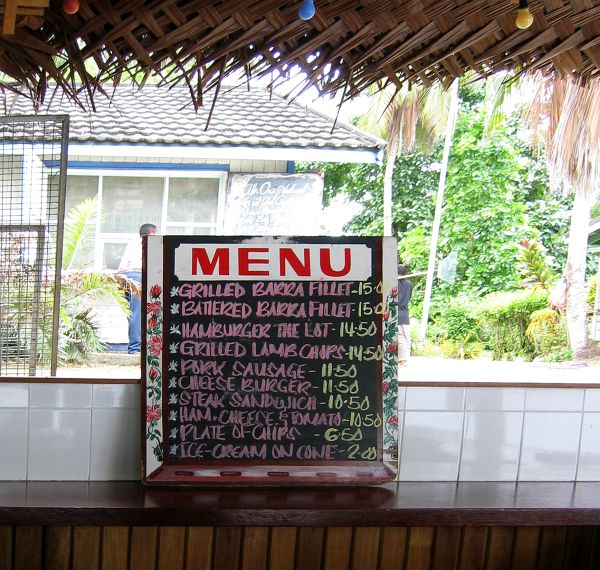 MENU
GRILLED BARRA FILLET-15.0
BATTERED BARRA FILLET-15.0
HAMBURGER THE LOT-14.50
GRILLED LAMB CHIPS-14.50
PORK SAUSAGE-11.50
CHEESE BURGER-11.50
STEAK SANDWICH-10.50
HAM, CHEESE & TOMATO-10.50
PLATE OF CHIPS-6.50
ICE-CREAM ON CONE-2.00